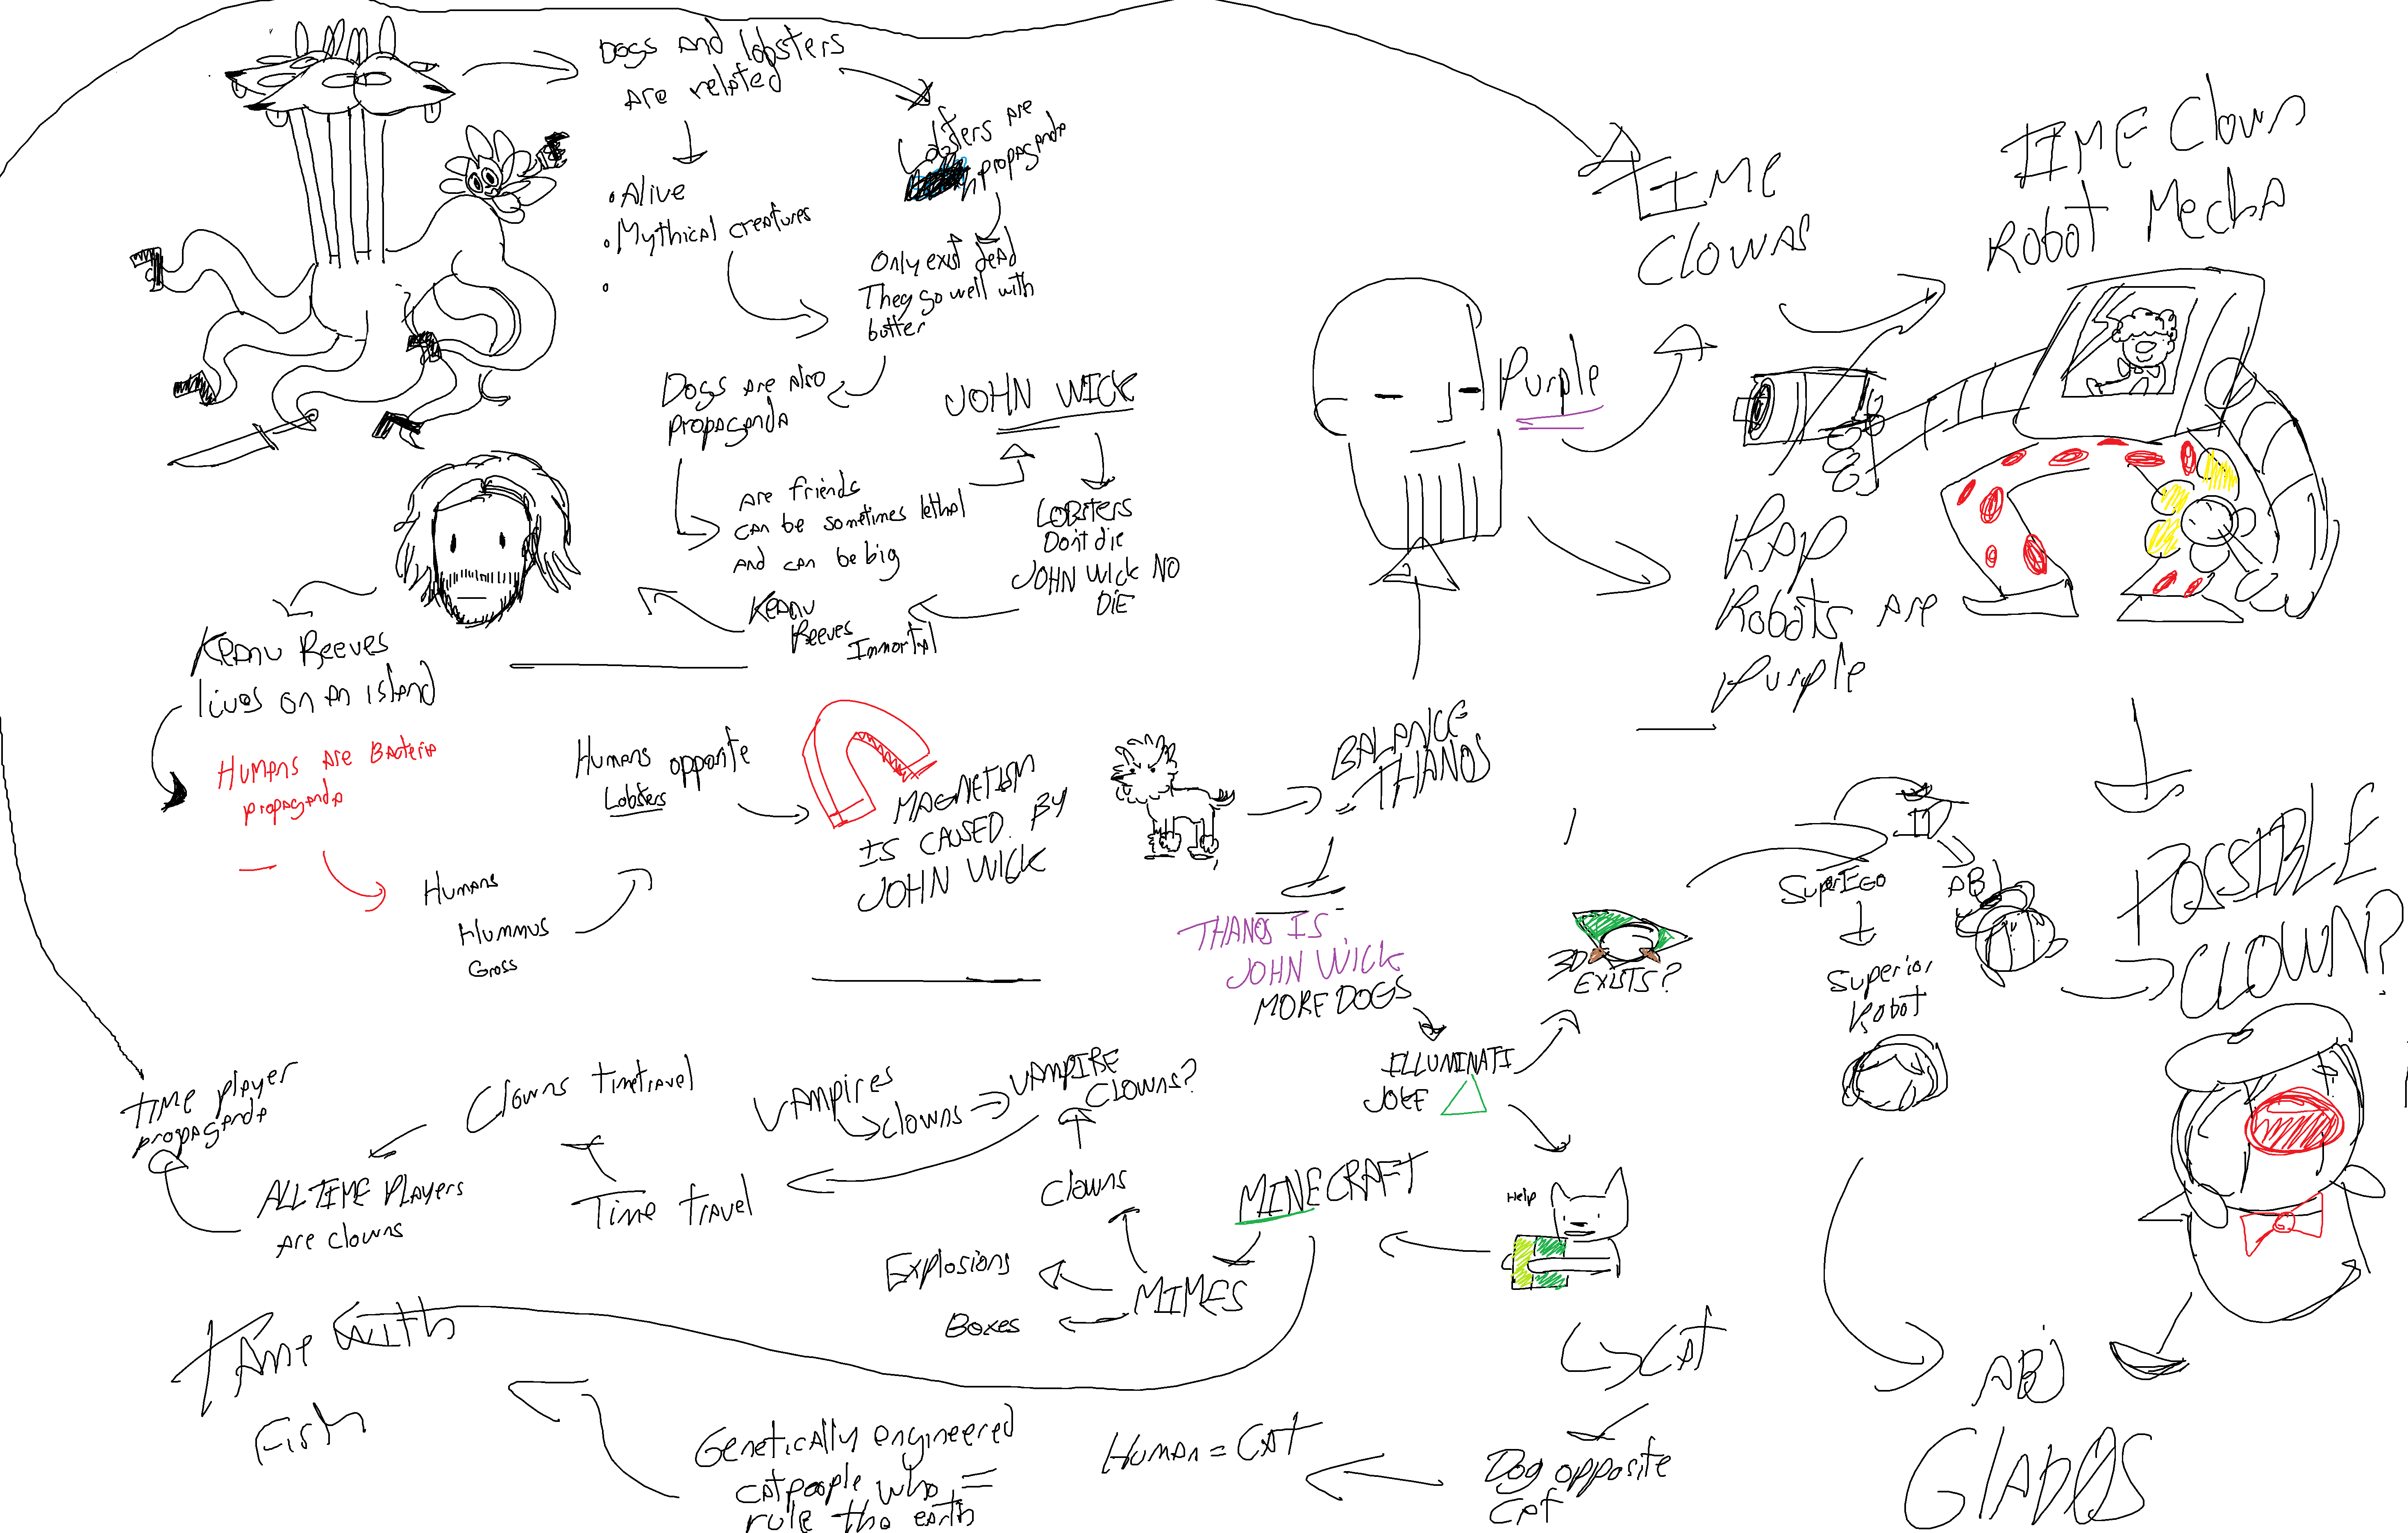 Dogs and lobsters
are related
Lobsters are
propaganda
• Alive
• Mythical creatures
•
Only exist dead
They go well with
butter
Dogs are also
propaganda
JOHN WICK
are friends
can be sometimes lethal
and can be big
LOBSTERS
Don't die
JOHN WICK NO
DIE
Keanu
Reeves
Immortal
Keanu Reeves
lives on an island
Humans are Bacteria
propaganda
Humans
Hummus
Gross
Humans opposite
Lobsters
MAGNETISM
IS CAUSED BY
JOHN WICK
BALANCE
= THANOS
Purple
TIME
Clowns
TIME Clown
Robot Mecha
RAP
Robots are
Purple
THANOS IS
JOHN WICK
MORE DOGS
ILLUMINATI
JOKE
3D
EXISTS?
SuperEGO
ABJ
Superior
Robot
POSSIBLE
CLOWN?
ABJ
GlaDOS
Help
CAT
Dog opposite
Cat
Human = CAT
Genetically engineered
catpeople who =
rule the earth
Tame with
Fish
MINECRAFT
MIMES
Explosions
Boxes
Clowns
Vampires
Clowns
VAMPIRE
Clowns?
Time travel
Clowns timetravel
ALL TIME Players
are clowns
Time player
propaganda